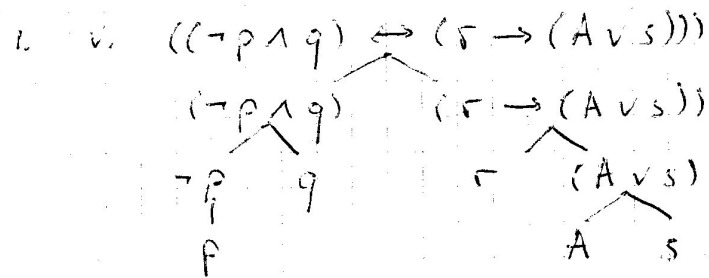 1. v. ((¬p ∧ q) ↔ (r → (A ∨ s)))
(¬p ∧ q) (r → (A ∨ s))
¬p q r (A ∨ s)
p A s